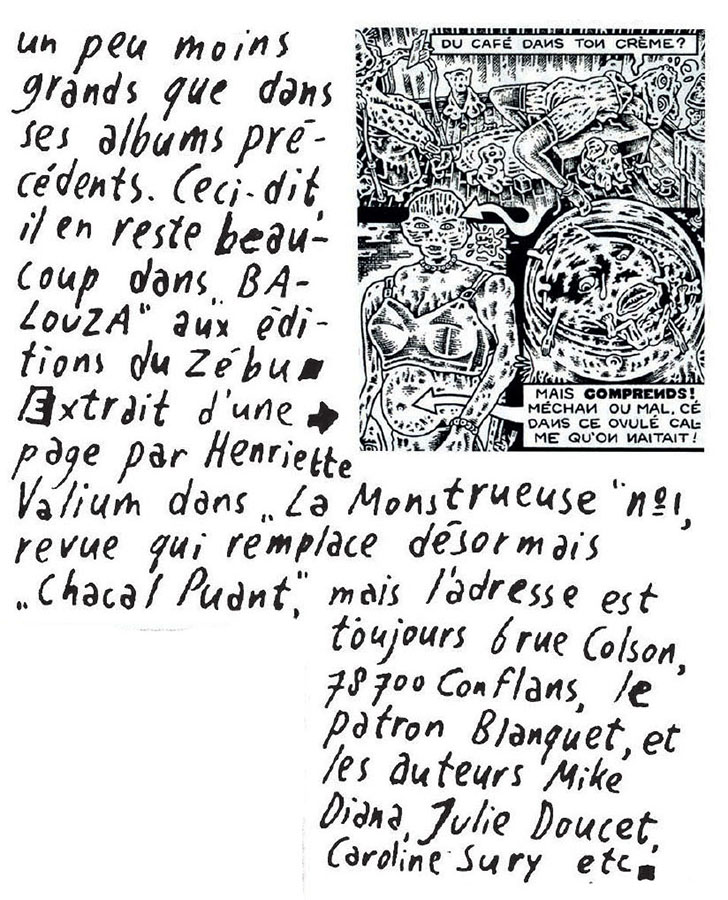 un peu moins
grands que dans
ses albums pré-
cédents. Ceci-dit,
il en reste beau-
coup dans „BA-
LOUZA" aux édi-
tions du Zébu
Extrait d'une
page par Henriette
Valium dans „La Monstrueuse" nº1,
revue qui remplace désormais
„Chacal Puant," mais l'adresse est
toujours 6 rue Colson,
78700 Conflans, le
patron Blanquet, et
les auteurs Mike
Diana, Julie Doucet,
Caroline Sury etc.
DU CAFÉ DANS TON CRÈME?
MAIS COMPRENDS!
MÉCHAN OU MAL, CÉ
DANS CE OVULÉ CAL-
ME QU'ON NAITAIT!